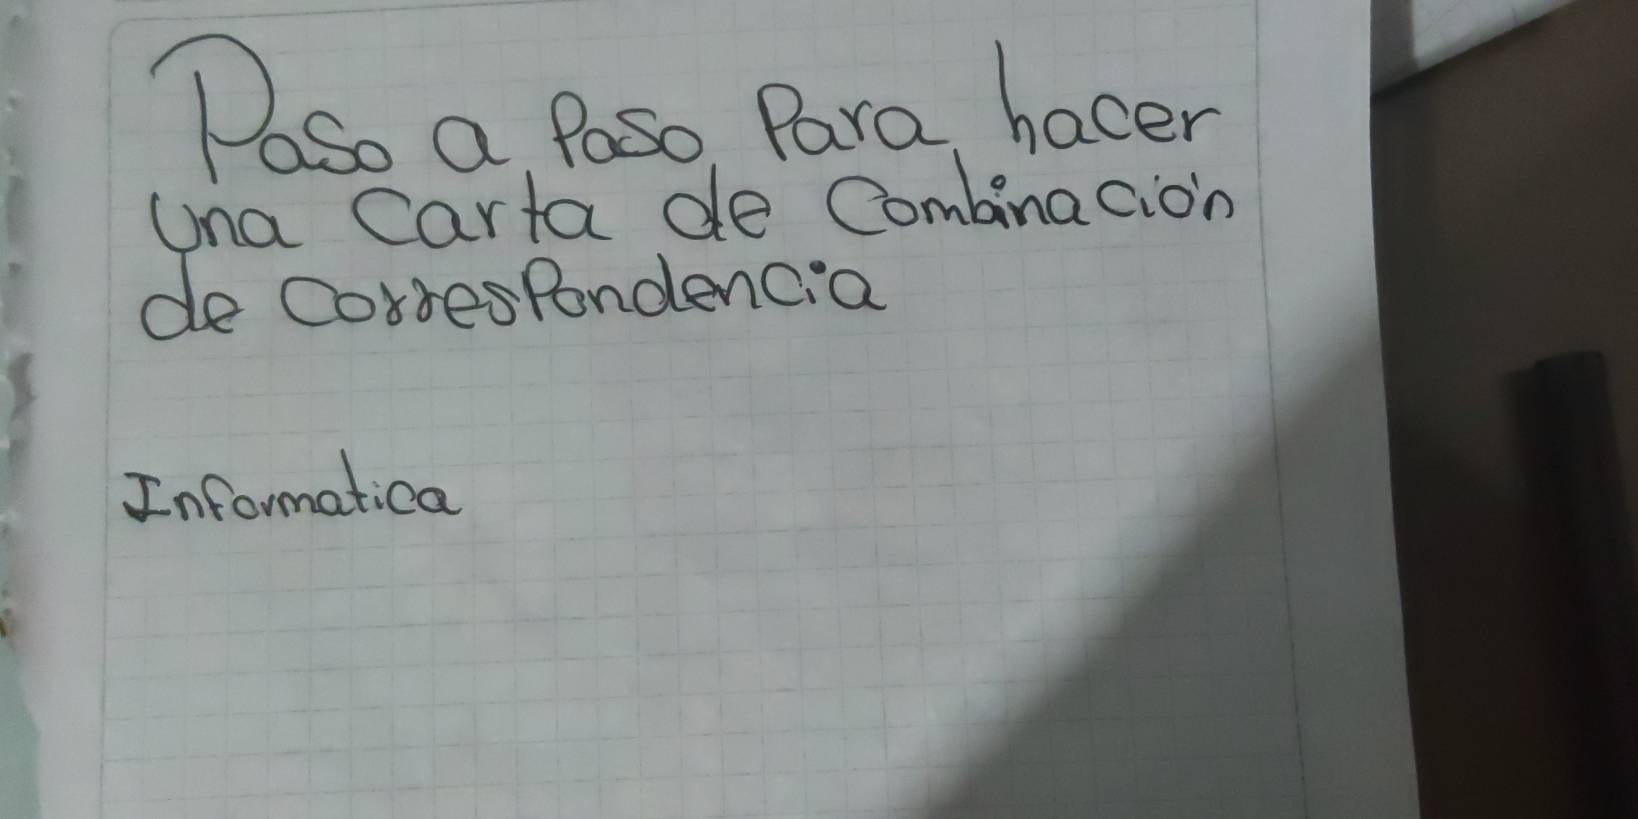 Paso a Paso Para hacer
una Carta de Combinación
de Correspondencia
Informatica